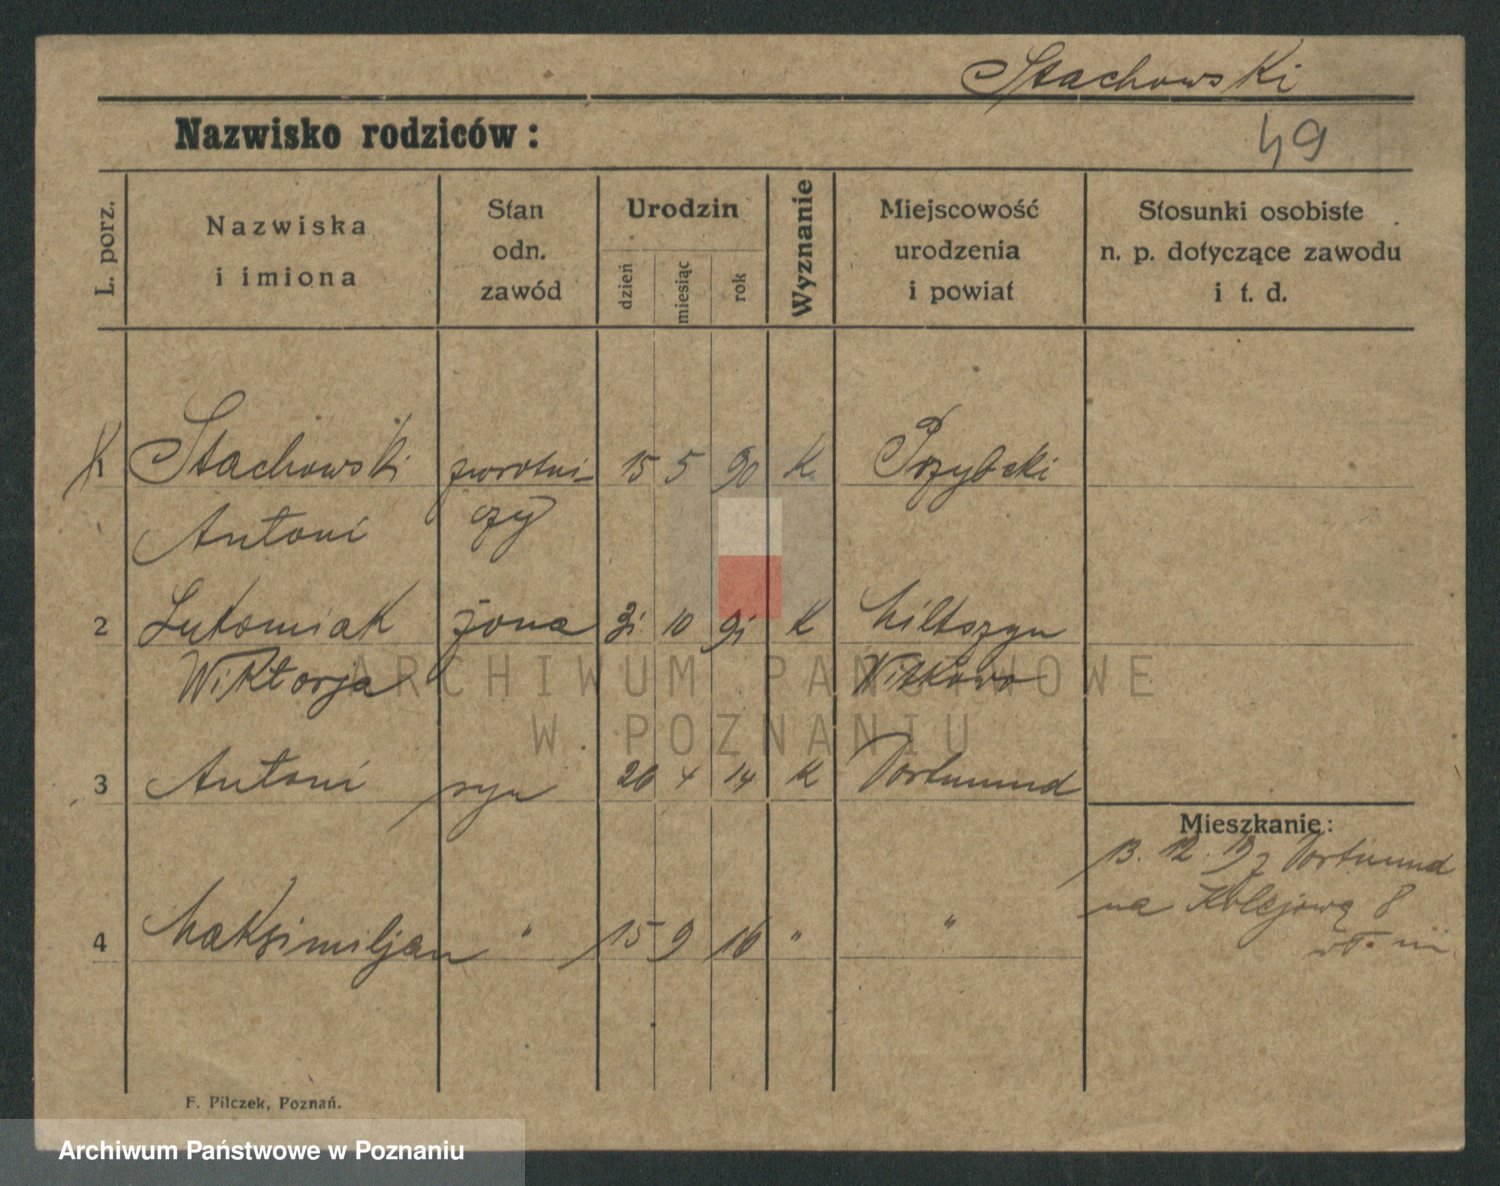 Stachowski
49
Nazwisko rodziców:
L. porz.
Nazwiska
i imiona
Stan
odn.
zawód
Urodzin
dzień
miesiąc
rok
Wyznanie
Miejscowość
urodzenia
i powiat
Stosunki osobiste
n. p. dotyczące zawodu
i t. d.
1 Stachowski zwrotni- 15 5 90 K
Antoni czy
2 Lutomiak żona 31 10 91 K Miltszyn
Wiktorja Witkowo
3 Antoni syn 26 4 14 K Dortmund
Mieszkanie:
13. 12. 19 z Dortmund
na Kolejową 8
4 Maksimiljan " 15 9 16 " "
F. Pilczek, Poznań.
ARCHIWUM PAŃSTWOWE
W POZNANIU
Archiwum Państwowe w Poznaniu